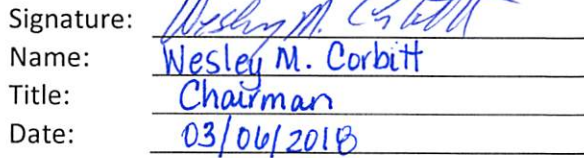 Signature: Wesley M. Corbitt
Name: Wesley M. Corbitt
Title: Chairman
Date: 03/06/2018